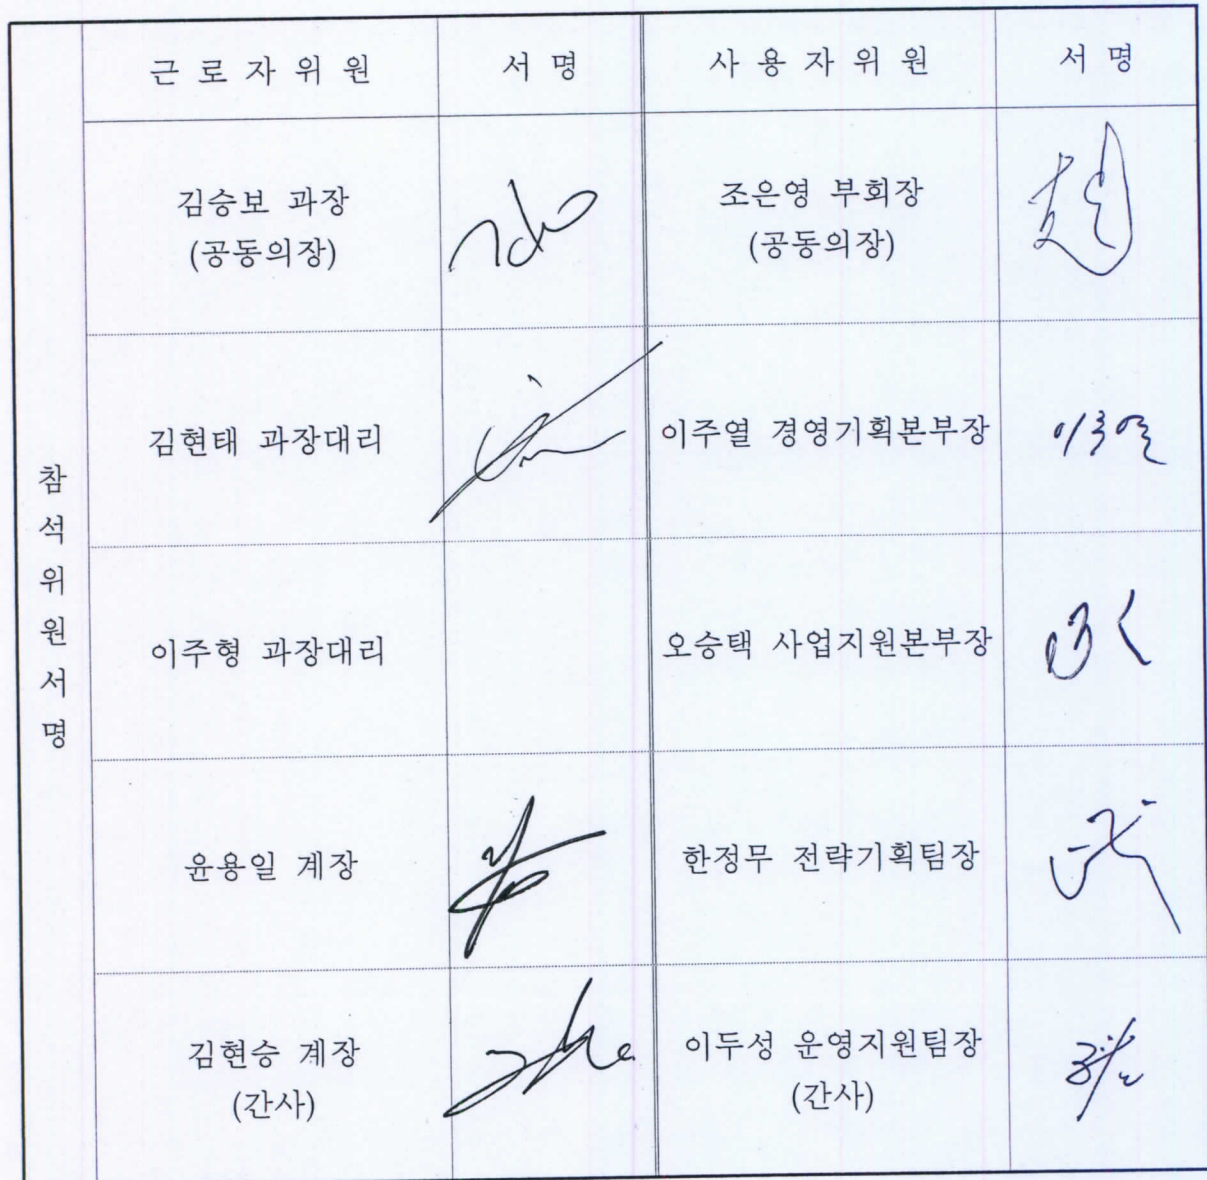 근로자위원 서명 사용자위원 서명
참석위원서명
김승보 과장 조은영 부회장
(공동의장) (공동의장)
김현태 과장대리 이주열 경영기획본부장 이주열
이주형 과장대리 오승택 사업지원본부장
윤용일 계장 한정무 전략기획팀장
김현승 계장 이두성 운영지원팀장
(간사) (간사)